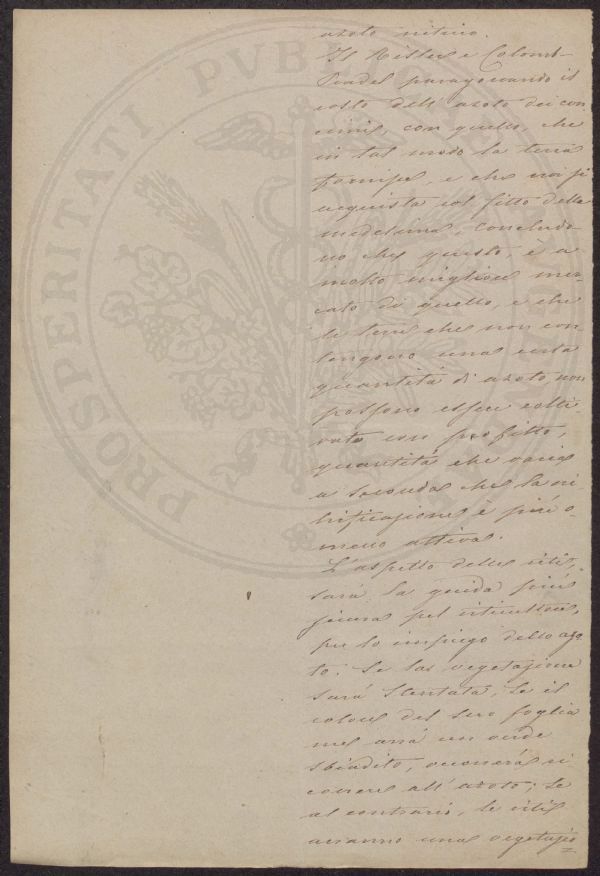 azoto nitrico.
Il Risler e Colomb-
Pradel paragonando il
costo dell' azoto dei con
cimi, con quello, che
in tal modo la terra
fornisce, e che noi si
acquista col fitto della
medesima, concludo-
no che questo, è a
molto migliore mer-
cato di quello, e che
le terre che non con
tengono una certa
quantitá di azoto, non
possono essere colti
vate con profitto,
quantitá che varia
a seconda che la ni
trificazione è piú o
meno attiva.
L'aspetto delle viti,
sará la guida piú
sicura pel viticultore,
per lo impiego dello azo
to. Se la vegetazione
sará stentata, se il
colore del suo foglia
me avrá un verde
sbiadito, occorrerá ri
correre all' azoto; se
al contrario, le viti
avranno una vegetazio
PROSPERITATI PVBL